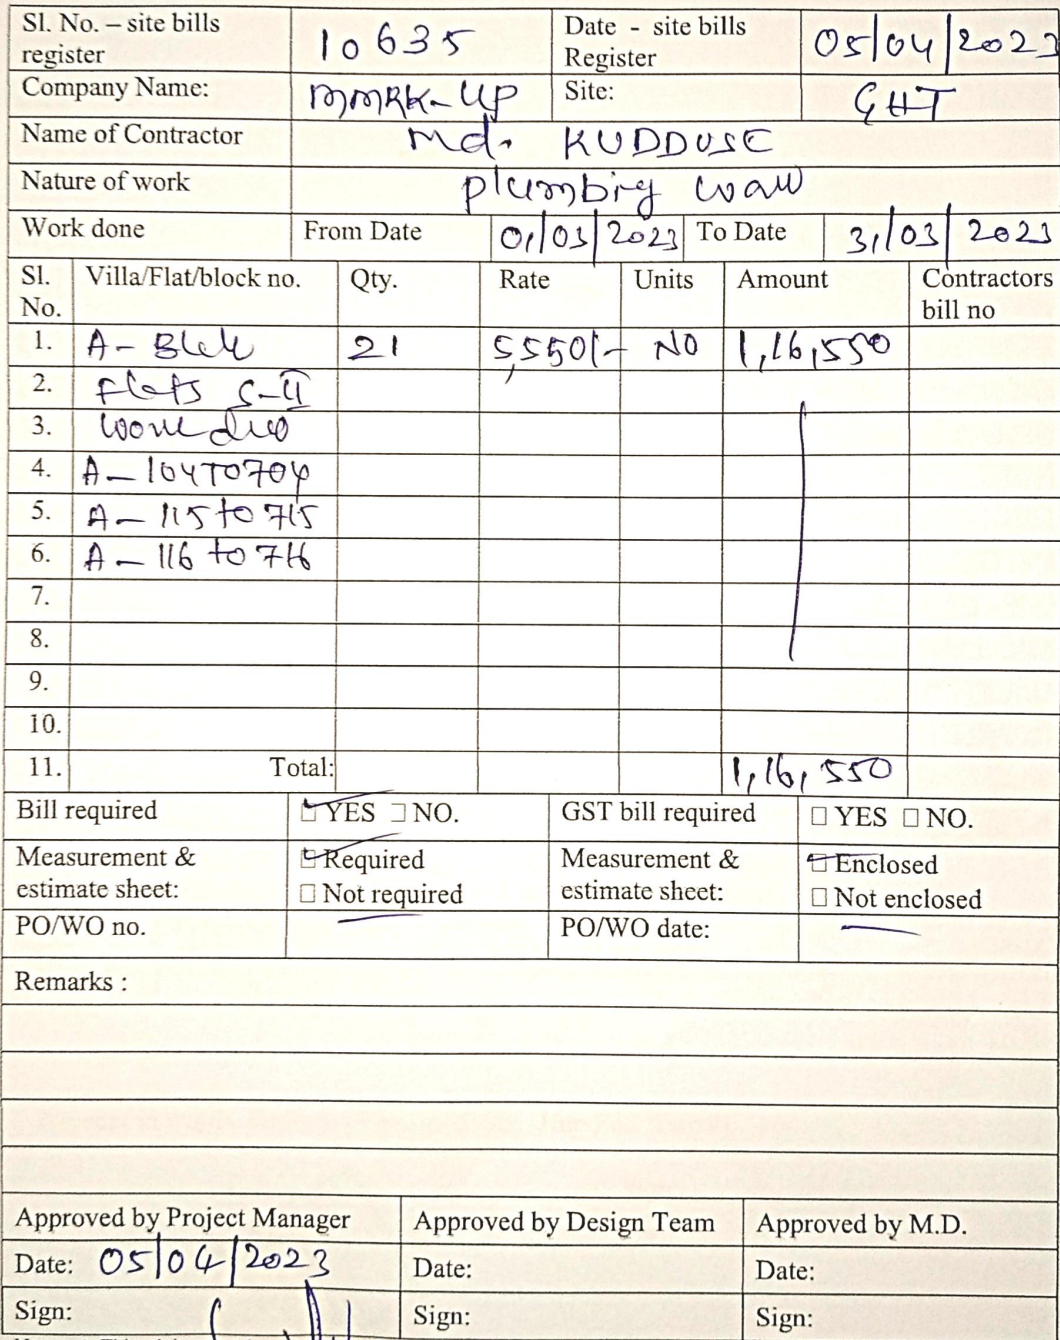 Sl. No. – site bills register 10635 Date - site bills Register 05/04/2023
Company Name: MMRK-UP Site: GHT
Name of Contractor Md. KUDDUSE
Nature of work plumbing
Work done From Date 01/03/2023 To Date 31/03/2023
Sl. No. Villa/Flat/block no. Qty. Rate Units Amount Contractors bill no
1. A- 21 5,550/- NO 1,16,550
2. Flats S-II
3.
4. A-104 TO 704
5. A-115 to 715
6. A-116 to 716
7.
8.
9.
10.
11. Total: 1,16,550
Bill required YES NO. GST bill required YES NO.
Measurement & estimate sheet: Required Not required Measurement & estimate sheet: Enclosed Not enclosed
PO/WO no. PO/WO date:
Remarks :
Approved by Project Manager Approved by Design Team Approved by M.D.
Date: 05/04/2023 Date: Date:
Sign: Sign: Sign: